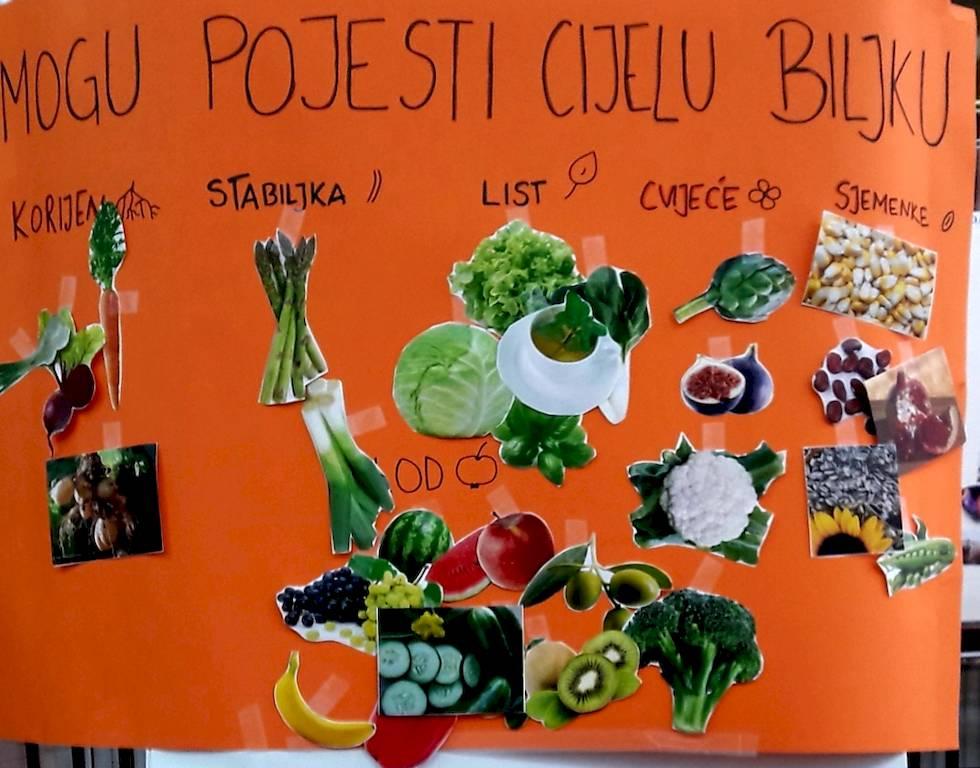 MOGU POJESTI CIJELU BILJKU
KORIJEN
STABILJKA
LIST
CVIJEĆE
SJEMENKE
PLOD